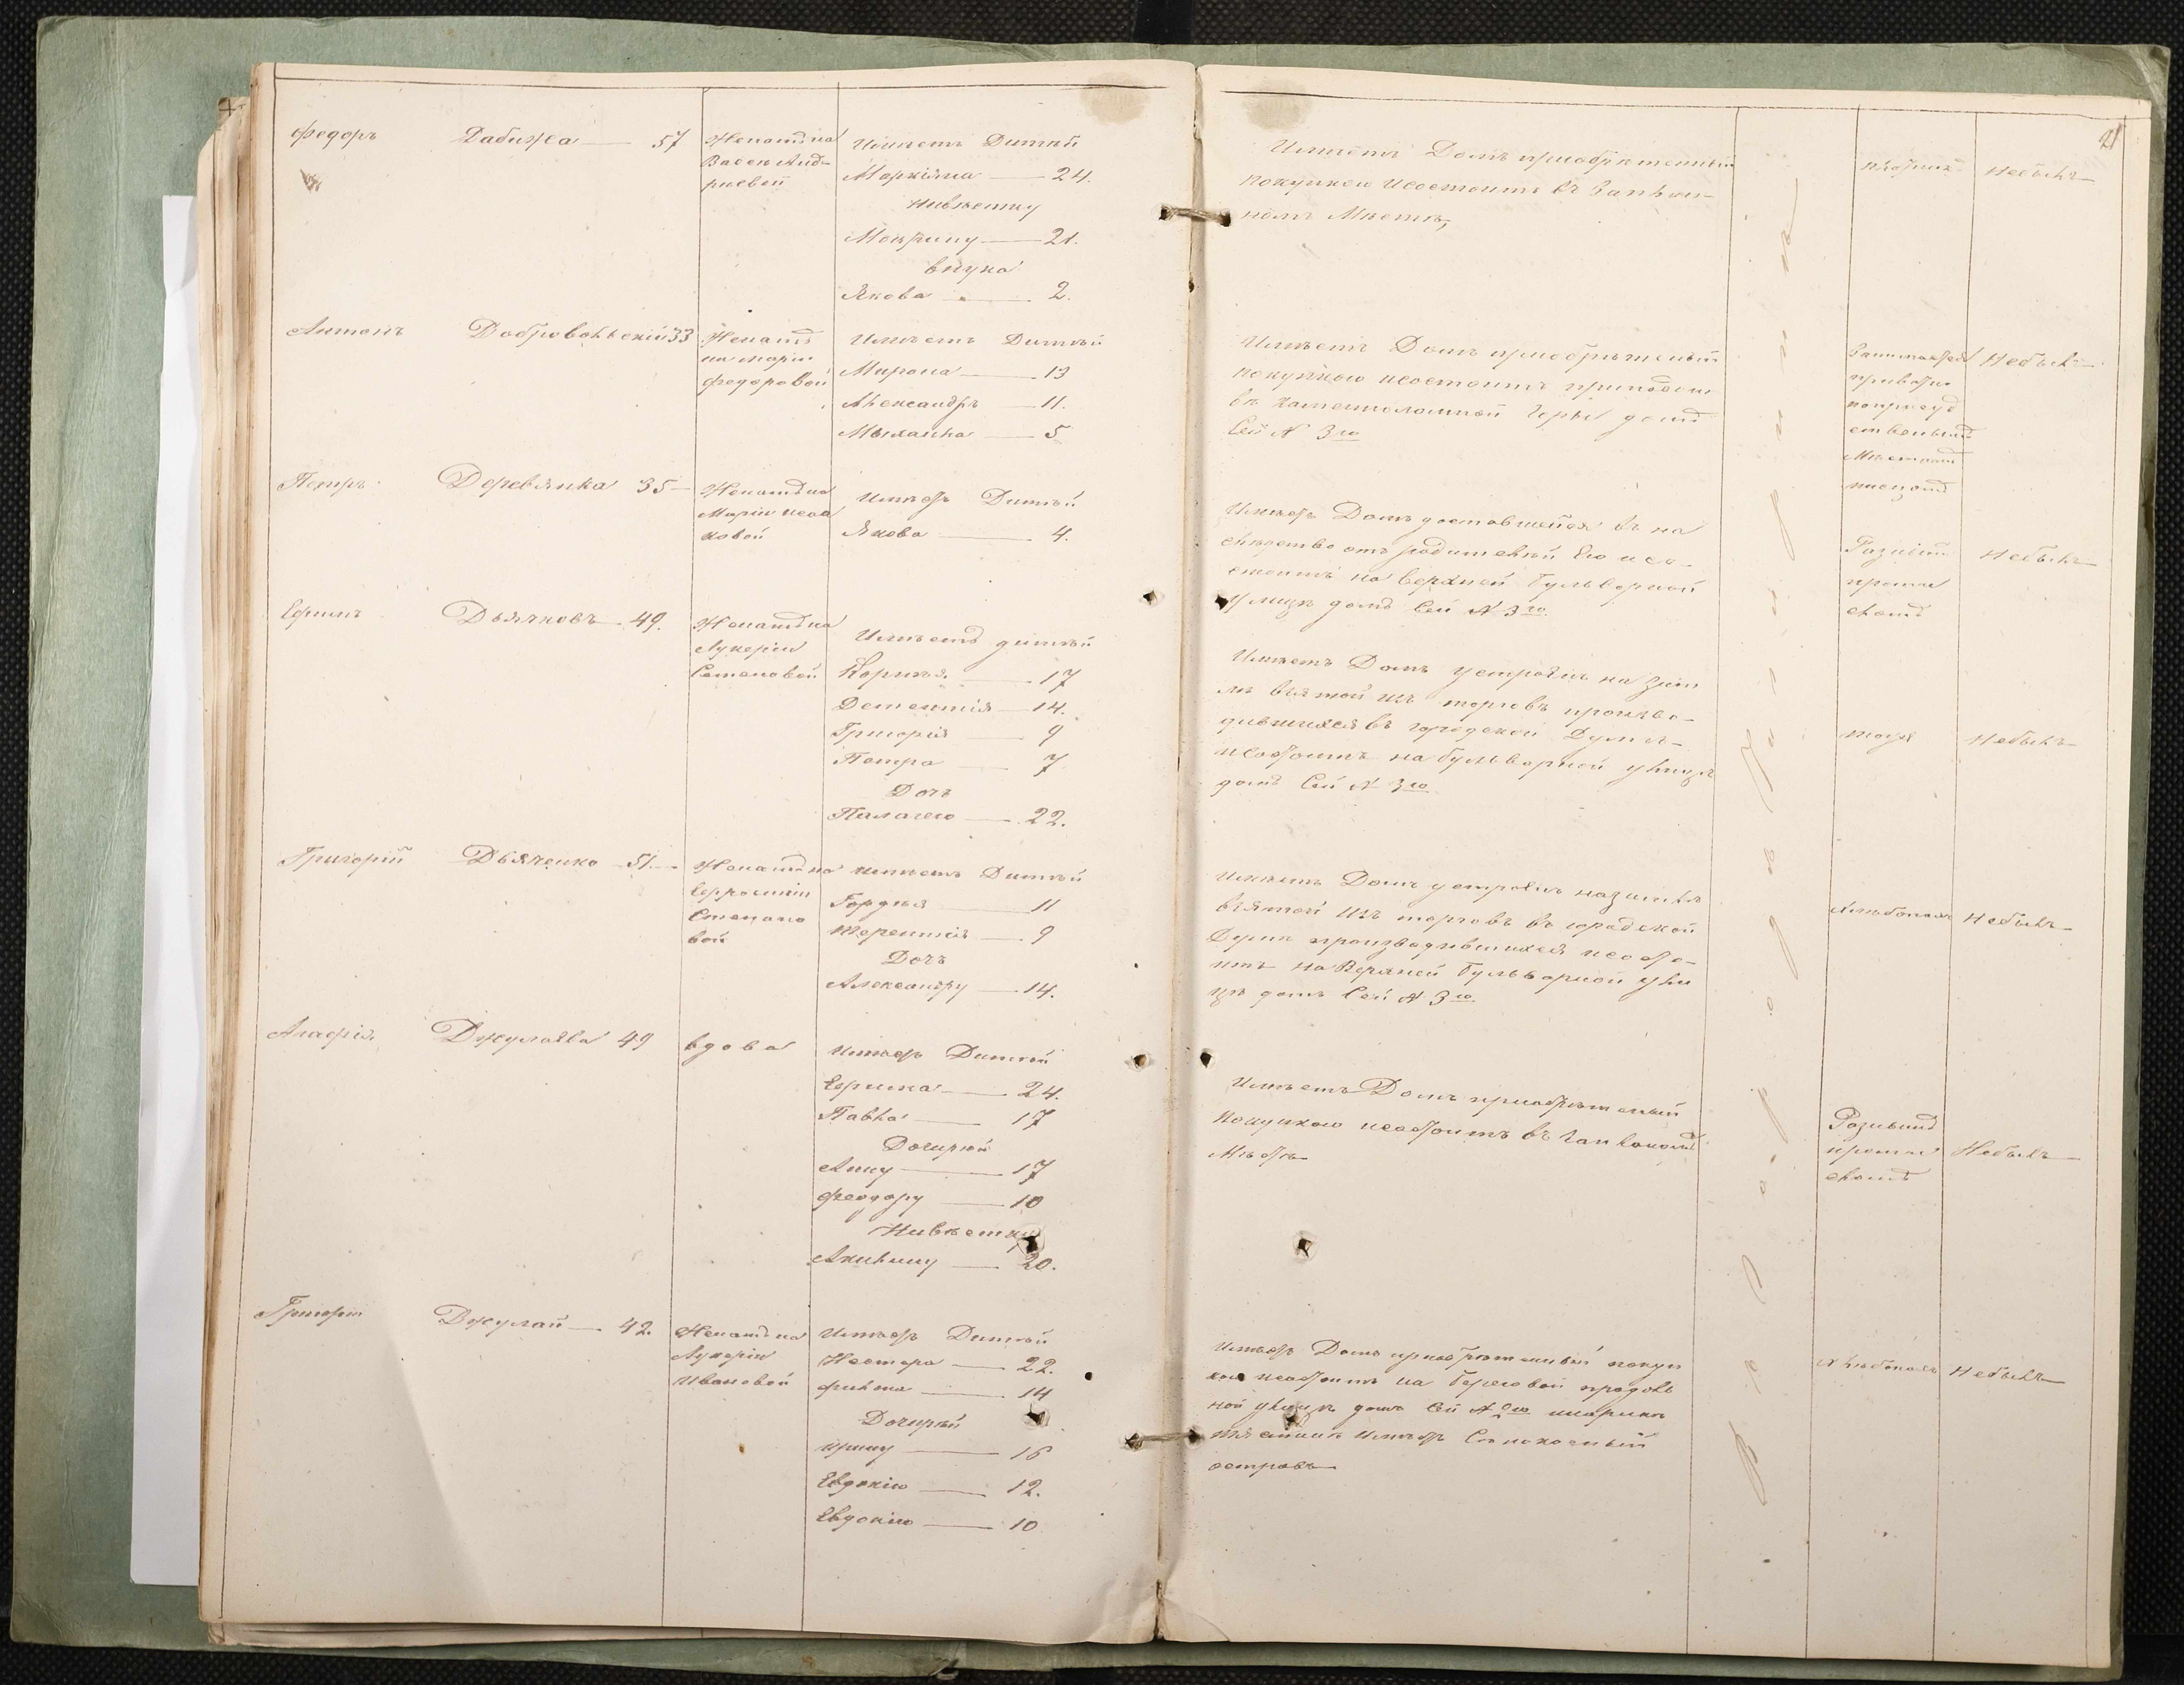 21
Федоръ Дабижа — 57
Женатъ на
Васси Анд-
риевой
Имѣетъ Дитѣй
Маркіяна — 24.
Нивѣстку
Мокрину — 21.
внука
Якова — 2.
Имѣетъ Домъ приобрѣтенный
покупкою и состоитъ въ
номъ Мѣстѣ,
Небылъ
Антонъ Добровольскій 33
Женатъ
на Маріи
Федоровой
Имѣетъ Дитѣй
Мирона — 13
Александръ — 11.
Михаила — 5
Имѣетъ Домъ приобрѣтеный
покупкою и состоитъ
въ Каменноломной горы домъ
Сей № 3го
Занимается
Небылъ
Петръ Деревянка 35 —
Женатъ на
Маріи Исаа
ковой
Имѣетъ Дитѣй
Якова — 4.
Имѣетъ Домъ доставшейся въ на
слѣдство отъ родителѣй Его и со-
стоитъ на верхней Бульварной
улицѣ домъ Сей № 3го
Разнымъ
промы
сломъ
Небылъ
Ефимъ Дьячковъ — 49.
Женатъ на
Лукеріи
Семеновой
Имѣетъ дитѣй
Корнея — 17
Дементія — 14.
Григорія — 9
Петра — 7
Доч
Палагею — 22.
Имѣетъ Домъ устроилъ на зем
лѣ взятой изъ торговъ произво-
дившихся въ городской Думѣ —
и состоитъ на бульварной улицѣ
домъ Сей № 3го
тоже
Небылъ
Григорій Дьяченко — 51. —
Женатъ на
Ефросинии
Степано
вой
Имѣетъ Дитѣй
Гордѣя — 11
Терентія — 9
Дочъ
Александру — 14.
Имѣетъ Домъ устроилъ на землѣ
взятой изъ торговъ въ городской
Думѣ производившихся и состо-
итъ на Верхней Бульварной ули
цѣ домъ Сей № 3го
Хлѣбопаш
Небылъ
Агафія Джулаева 49
вдова
Имѣетъ Дитѣй
Ефима — 24.
Павла — 17
Дочирѣй
Анну — 17
Феодору — 10
Нивѣстку
Акилину — 20.
Имѣетъ Домъ приобрѣтеный
покупкою и состоитъ въ
Мѣстѣ
Разнымъ
промы
сломъ
Небылъ
Григорій Джулай — 42.
Женатъ на
Лукеріи
Ивановой
Имѣетъ Дитѣй
Нестора — 22.
Филипа — 14
Дочирѣй
Ирину — 16
Евдокію — 12.
Евдокію — 10
Имѣетъ Домъ приобрѣтенный покуп
кою и состоитъ на Береговой продоль
ной улицѣ домъ Сей №
имѣетъ Сѣнокосный
островъ
Хлѣбопаш
Небылъ